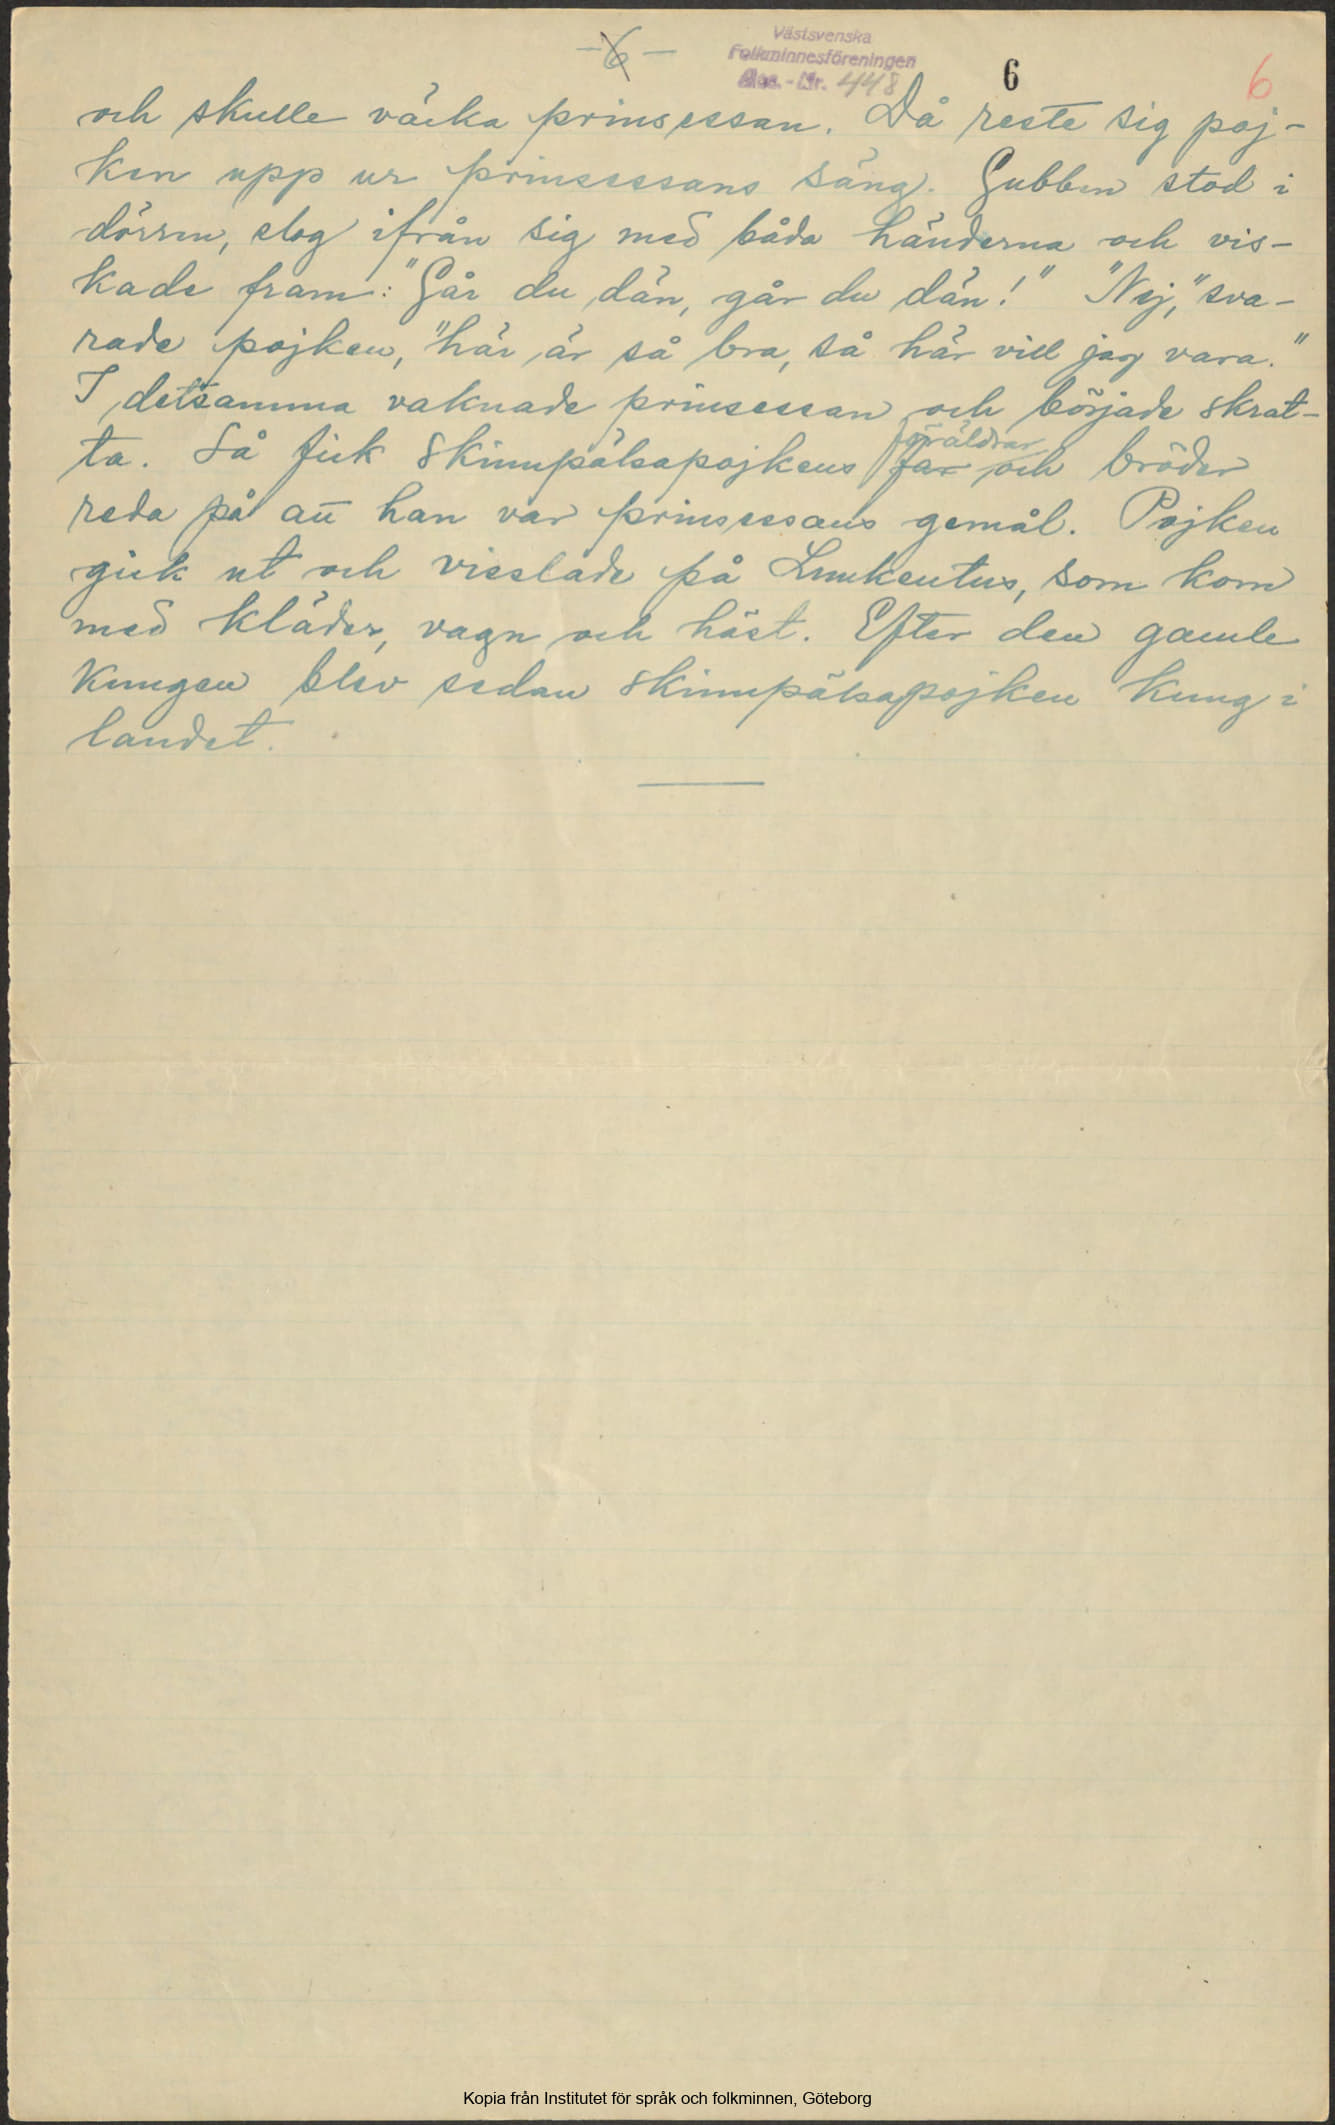 -6-
Västsvenska
Folkminnesföreningen
Acc.-Nr. 448
6
6
och skulle väcka prinsessan. Då reste sig poj-
ken upp ur prinsessans säng. Gubben stod i
dörren, slog ifrån sig med båda händerna och vis-
kade fram: "Går du dän, går du dän!" "Nej," sva-
rade pojken, "här är så bra, så här vill jag vara."
I detsamma vaknade prinsessan och började skrat-
föräldrar
ta. Så fick skinnpälsapojkens far och bröder
reda på att han var prinsessans gemål. Pojken
gick ut och visslade på Lunkentus, som kom
med kläder, vagn och häst. Efter den gamle
kungen blev sedan skinnpälsapojken kung i
landet.
Kopia från Institutet för språk och folkminnen, Göteborg